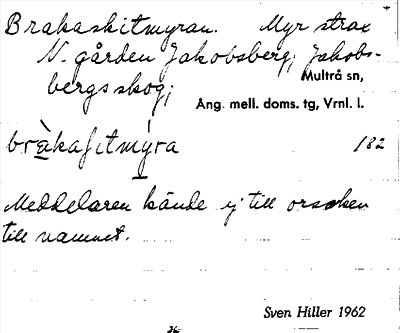 Brakaskitmyran. Myr strax
N. gården Jakobsberg; Jakobs-
bergsskog;
Multrå sn,
Ång. mell. doms. tg, Vrnl. l.
bràkaʃitmýra 182
Meddelaren kände ej till orsaken
till namnet.
Sven Hiller 1962